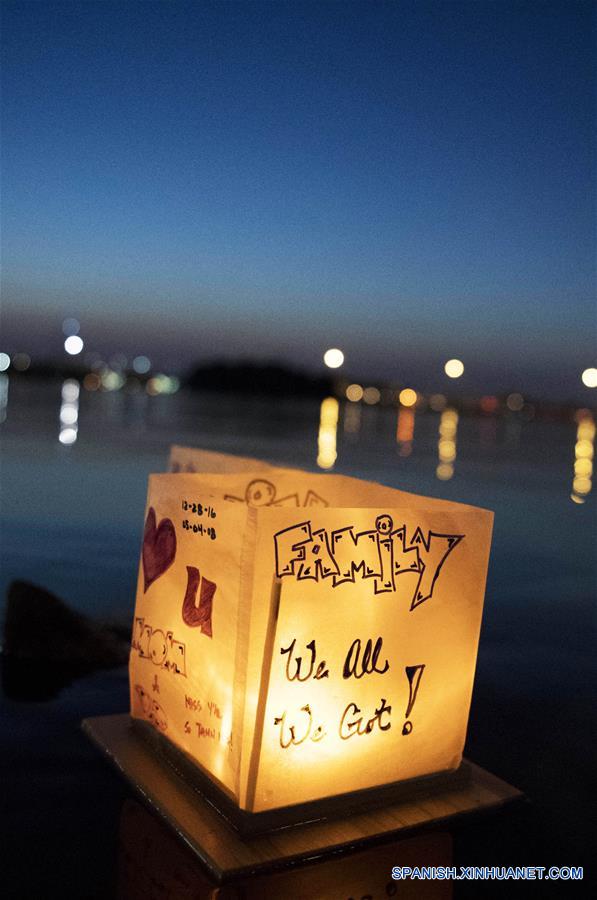 12-28-16
05-04-08
U
MOM
&
MISS Y'ALL
SO
FAMILY
We All
We Got!
SPANISH.XINHUANET.COM